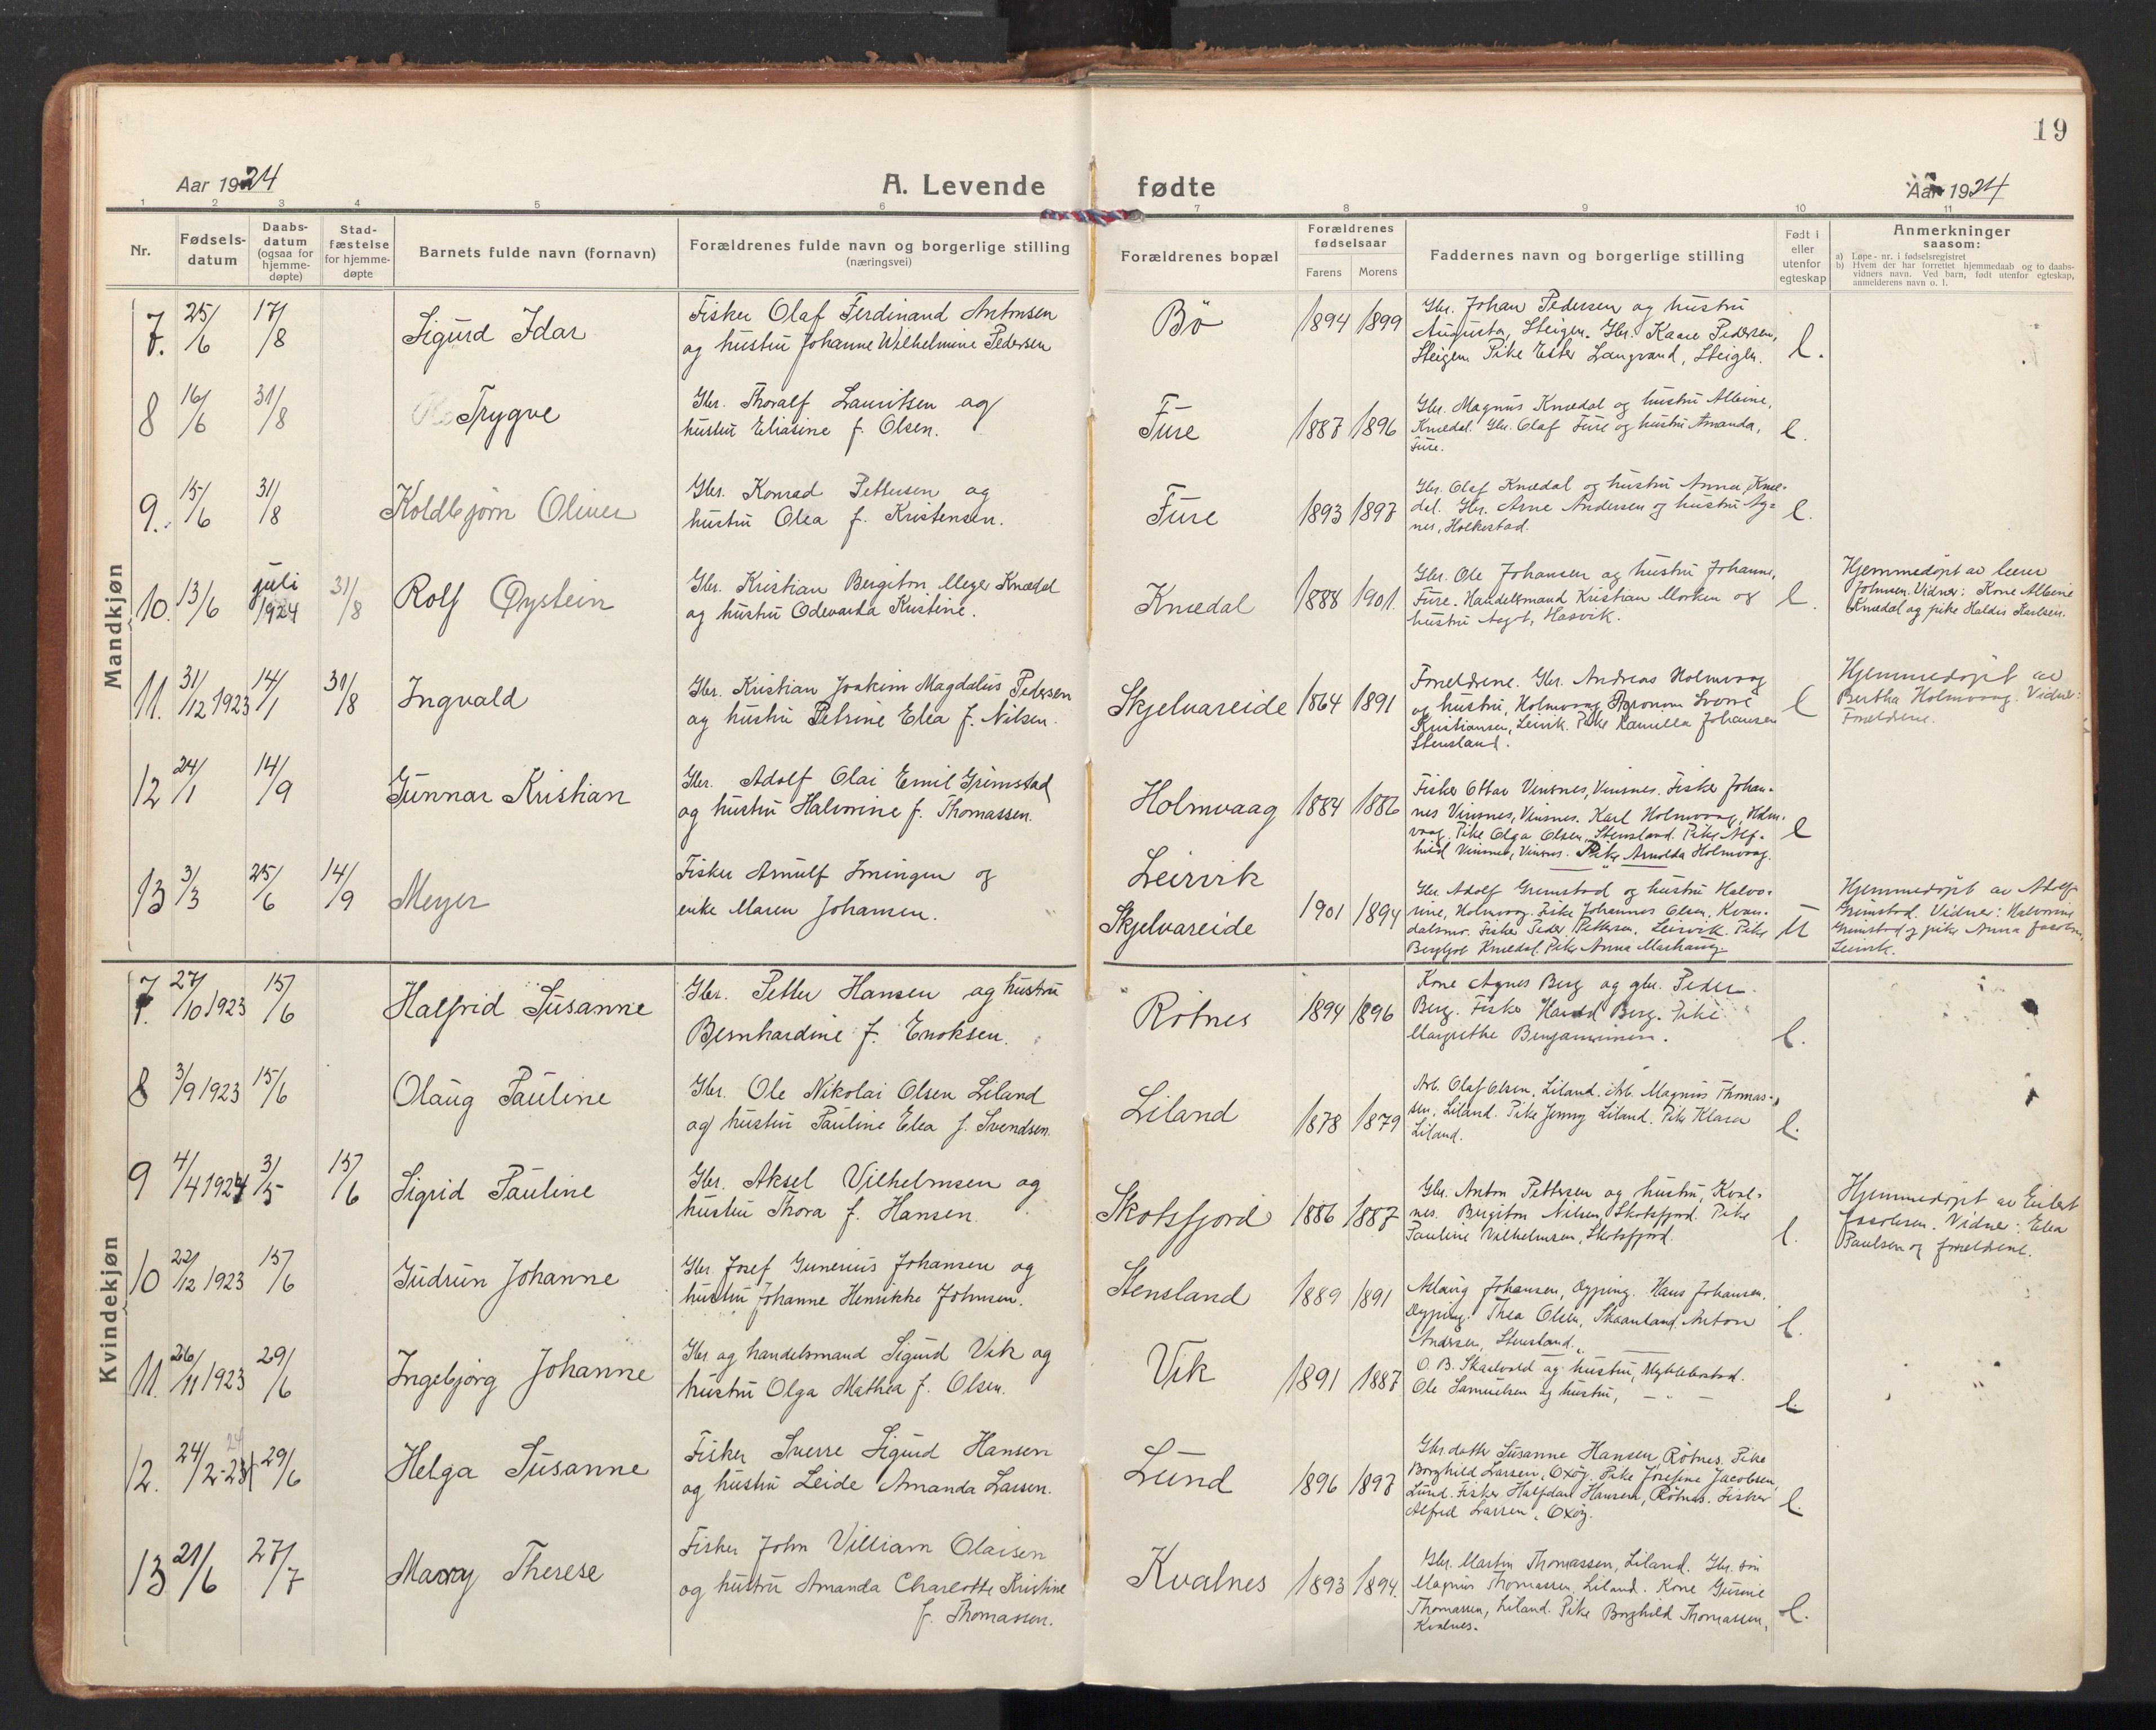 19
Aar 1924
A. Levende fødte
Aar 1924
1 2 3 4 5 6 7 8 9 10 11
Nr.
Fødsels-
datum
Daabs-
datum
(ogsaa for
hjemme-
døpte)
Stad-
fæstelse
for hjemme-
døpte
Barnets fulde navn (fornavn)
Forældrenes fulde navn og borgerlige stilling
(næringsvei)
Forældrenes bopæl
Forældrenes
fødselsaar
Farens Morens
Faddernes navn og borgerlige stilling
Født i
eller
utenfor
egteskap
Anmerkninger
saasom:
a) Løpe-nr. i fødselsregistret
b) Hvem der har forrettet hjemmedaab og to daabs-
vidners navn. Ved barn, født utenfor egteskap,
anmelderens navn o. l.
Mandkjøn
7. 25/6 17/8
Sigurd Idar
Fisker Olaf Ferdinand Antonsen
og hustru Johanne Wilhelmine Pedersen
Bö
1894 1899
Gbr. Johan Pedersen og hustru
Augusta, Steigen. Gbr. Kaare Pedersen,
Steigen. Pike Ester Langsand, Steigen.
l.
8 16/6 31/8
Trygve
Gbr. Thoralf Lauritsen og
hustru Eliasine f. Olsen.
Fure
1887 1896
Gbr. Magnus Knædal og hustru Albine,
Knædal. Gbr. Olaf Fure og hustru Amanda,
Fure.
l.
9. 15/6 31/8
Koldbjørn Oliver
Gbr. Konrad Pettersen og
hustru Olea f. Kristensen.
Fure
1893 1897
Gbr. Olaf Knædal og hustru Anna, Knæ-
dal. Gbr. Arne Andersen og hustru Ag-
nes, Holkestad.
l.
10. 13/6 juli 1924 31/8
Rolf Øystein
Gbr. Kristian Bergiton Meyer Knædal
og hustru Odevarda Kristine.
Knædal
1888 1901.
Gbr. Ole Johansen og hustru Johanne,
Fure. Handelsmand Kristian Morken og
hustru Aagt, Hasvik.
l.
Hjemmedøpt av lærer
Johnsen. Vidner: Kone Albine
Knædal og pike Haldis Karlsen.
11. 31/12 1923 14/1 31/8
Ingvald
Gbr. Kristian Joakim Magdalus Pedersen
og hustru Petrine Elea f. Nilsen.
Skjelvareide
1864 1891
Forældrene. Gbr. Andreas Holmvaag
og hustru, Holmvaag. Agronom Sverre
Kristiansen, Leivik. Pike Kamilla Johansen
Stensland.
l
Hjemmedøpt av
Bertha Holmvaag. Vidner:
Forældrene.
12 24/1 14/9
Gunnar Kristian
Gbr. Adolf Olai Emil Grimstad
og hustru Halvorine f. Thomassen.
Holmvaag
1884 1886
Fisker Ottar Vinsnes, Vinsnes. Fisker Johan-
nes Vinsnes, Vinsnes. Karl Holmvaag, Holm-
vaag. Pike Olga Olsen, Stensland. Pike Alf-
hild Vinsnes, Vinsnes. Pike Arnolda Holmvaag.
l
13 3/3 25/6 14/9
Meyer
Fisker Arnulf Imingen og
enke Maren Johansen.
Leirvik
Skjelvareide
1901 1894
Gbr. Adolf Grimstad og hustru Halvo-
rine, Holmvaag. Fisker Johannes Olsen, Kvan-
dalsmo. Fisker Peder Pettersen, Leirvik. Pike
Bergljot Knædal. Pike Anna Markaug.
U
Hjemmedøpt av Adolf
Grimstad. Vidner: Halvorine
Grimstad og pike Anna Jacobsen,
Leirvik.
Kvindekjøn
7. 27/10 1923 15/6
Halfrid Susanne
Gbr. Petter Hansen og hustru
Bernhardine f. Enoksen.
Rötnes
1894 1896
Kone Agnes Berg og gbr. Peder
Berg. Fisker Harald Berg. Pike
Margrethe Benjaminsen.
l.
8 3/9 1923 15/6
Olaug Pauline
Gbr. Ole Nikolai Olsen Liland
og hustru Pauline Elea f. Svendsen.
Liland
1878 1879
Arb. Olaf Olsen, Liland. Arb. Magnus Thomas-
sen, Liland. Pike Jenny Liland. Pike Klara
Liland.
l.
9 4/4 1924 3/5 15/6
Sigrid Pauline
Gbr. Aksel Vilhelmsen og
hustru Thora f. Hansen.
Skotsfjord
1886 1887
Gbr. Anton Pettersen og hustru, Kval-
nes. Bergiton Nilsen, Skotsfjord. Pike
Pauline Vilhelmsen, Skotsfjord.
l.
Hjemmedøpt av Eilert
Jacobsen. Vidner: Elea
Paulsen og forældrene.
10 22/12 1923 15/6
Gudrun Johanne
Gbr. Josef Gunerius Johansen og
hustru Johanne Henrikke Johnsen.
Stensland
1889 1891
Aslaug Johansen, Dyping. Hans Johansen,
Dyping. Thea Olsen, Skaanland. Anton
Andersen, Stensland.
l.
11. 26/11 1923 29/6
Ingebjørg Johanne
Gbr. og handelsmand Sigurd Vik og
hustru Olga Mathea f. Olsen.
Vik
1891 1887
O. B. Skaelvold og hustru, Myklebostad.
Ole Samuelsen og hustru, — " —
l.
12. 24/2-23 24 29/6
Helga Susanne
Fisker Sverre Sigurd Hansen
og hustru Leide Amanda Larsen.
Lund
1896 1897
Gbr.datter Susanne Hansen, Rötnes. Pike
Borghild Larsen, Oxöy. Pike Josefine Jacobsen,
Lund. Fisker Halfdan Hansen, Rötnes. Fisker
Alfred Larsen, Oxöy.
l.
13 21/6 27/7
Marry Therese
Fisker John Villiam Olaisen
og hustru Amanda Charlotte Kristine
f. Thomassen.
Kvalnes
1893 1894.
Gbr. Martin Thomassen, Liland. Gbr. søn
Magnus Thomassen, Liland. Kone Gusine
Thomassen, Liland. Pike Borghild Thomassen,
Kvalnes.
l.